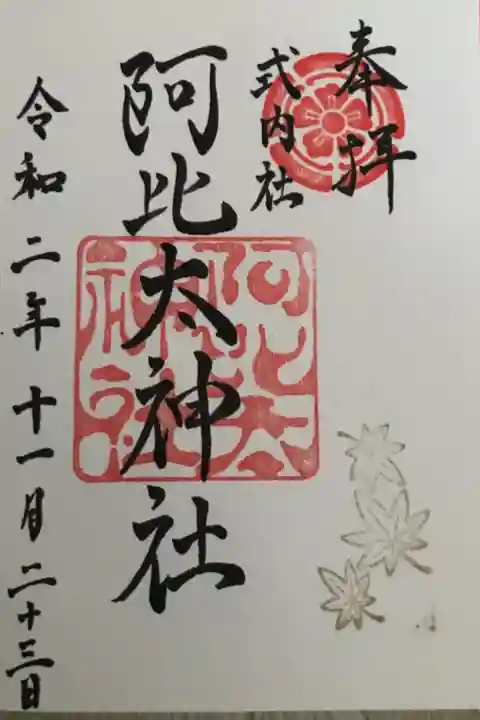 奉拝
式内社
阿比太神社
阿比太
神社
令和二年十一月二十三日